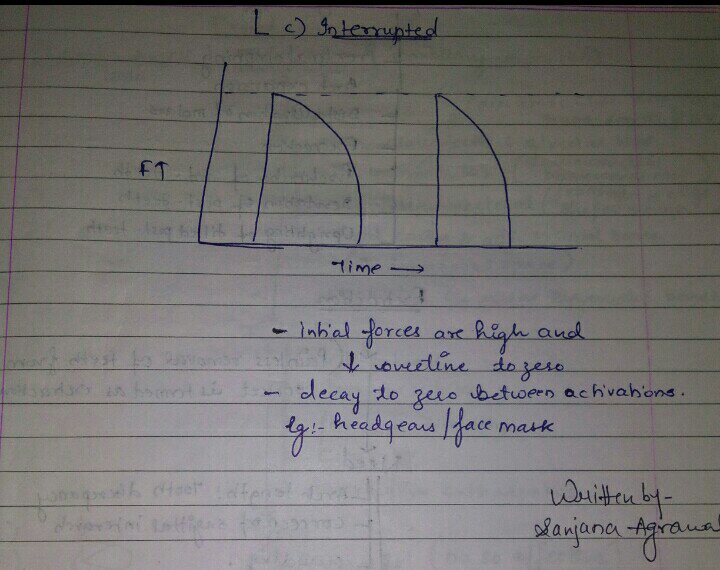 c) Interrupted
F↑
Time →
- initial forces are high and
↓ overtime to zero
- decay to zero between activations.
Eg:- headgears / face mask
Written by-
Sanjana Agrawal